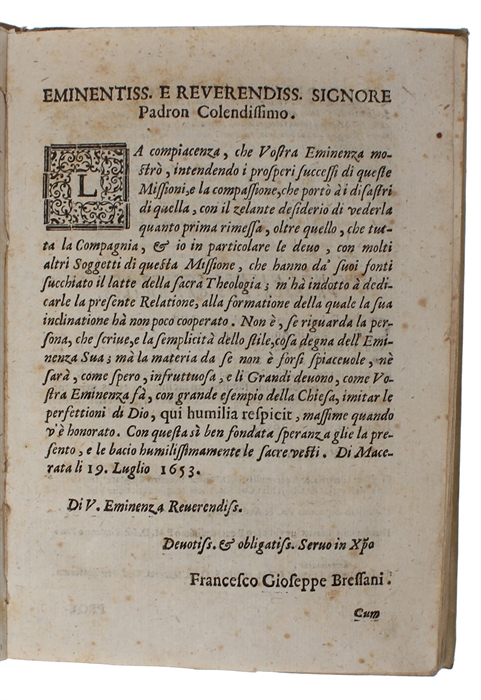 EMINENTISS. E REVERENDISS. SIGNORE
Padron Colendiſſimo.
LA compiacenza, che Voſtra Eminenza mo-
ſtrò, intendendo i proſperi ſucceſſi di queſte
Miſſioni, e la compaſſione, che portò à i diſaſtri
di quella, con il zelante deſiderio di vederla
quanto prima rimeſſa, oltre quello, che tut-
ta la Compagnia, & io in particolare le deuo, con molti
altri Soggetti di queſta Miſſione, che hanno da' ſuoi fonti
ſucchiato il latte della ſacra Theologia; m'hà indotto à dedi-
carle la preſente Relatione, alla formatione della quale la ſua
inclinatione hà non poco cooperato. Non è, ſe riguarda la per-
ſona, che ſcriue, e la ſemplicità dello ſtile, coſa degna dell'Emi-
nenza Sua; mà la materia da ſe non è forſi ſpiaceuole, nè
ſarà, come ſpero, infruttuoſa, e li Grandi deuono, come Vo-
ſtra Eminenza fà, con grande eſempio della Chieſa, imitar le
perfettioni di Dio, qui humilia reſpicit, maſſime quando
v'è honorato. Con queſta sì ben fondata ſperanza glie la pre-
ſento, e le bacio humiliſſimamente le ſacre veſti. Di Mace-
rata li 19. Luglio 1653.
Di V. Eminenza Reuerendiſs.
Deuotiſs. & obligatiſs. Seruo in Xp̃o
Franceſco Gioſeppe Breſſani.
Cum